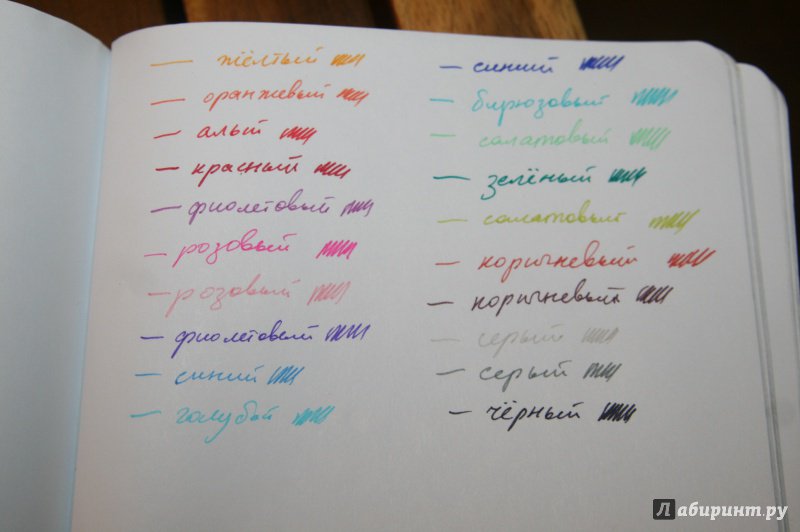 — жёлтый
— оранжевый
— алый
— красный
— фиолетовый
— розовый
— розовый
— фиолетовый
— синий
— голубой
— синий
— бирюзовый
— салатовый
— зелёный
— салатовый
— коричневый
— коричневый
— серый
— серый
— чёрный
Лабиринт.ру